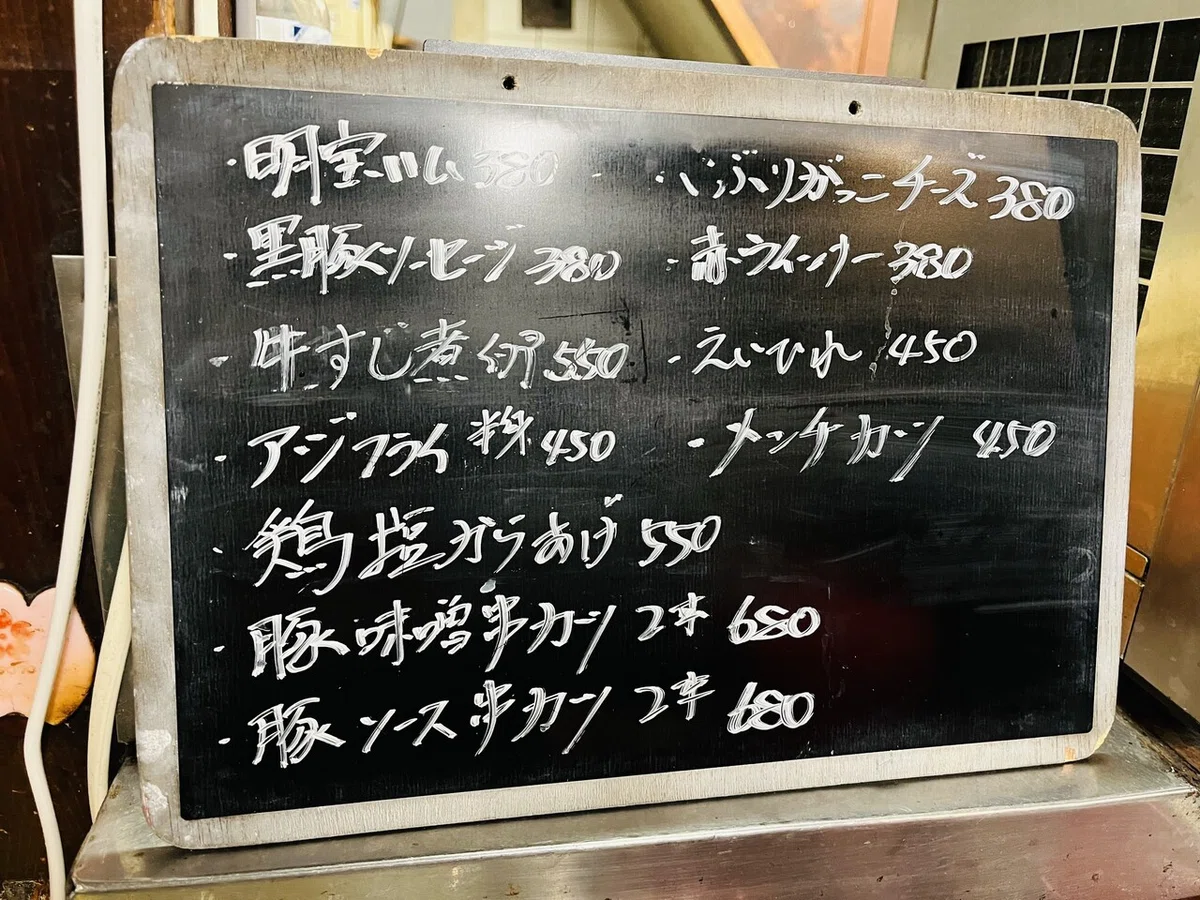 ・明宝ハム 380
・いぶりがっこチーズ 380
・黒豚ソーセージ 380
・赤ウインナー 380
・牛すじ煮 550
・えいひれ 450
・アジフライ 450
・メンチカツ 450
・鶏塩からあげ 550
・豚味噌串カツ 2本 680
・豚ソース串カツ 2本 680